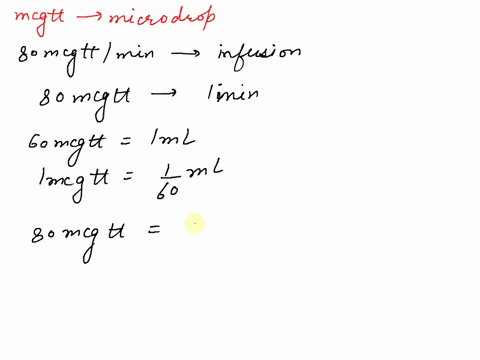 mcgtt → microdrop
80 mcgtt/min → infusion
80 mcgtt → 1min
60 mcgtt = 1mL
1mcgtt = 1/60 mL
80 mcgtt =